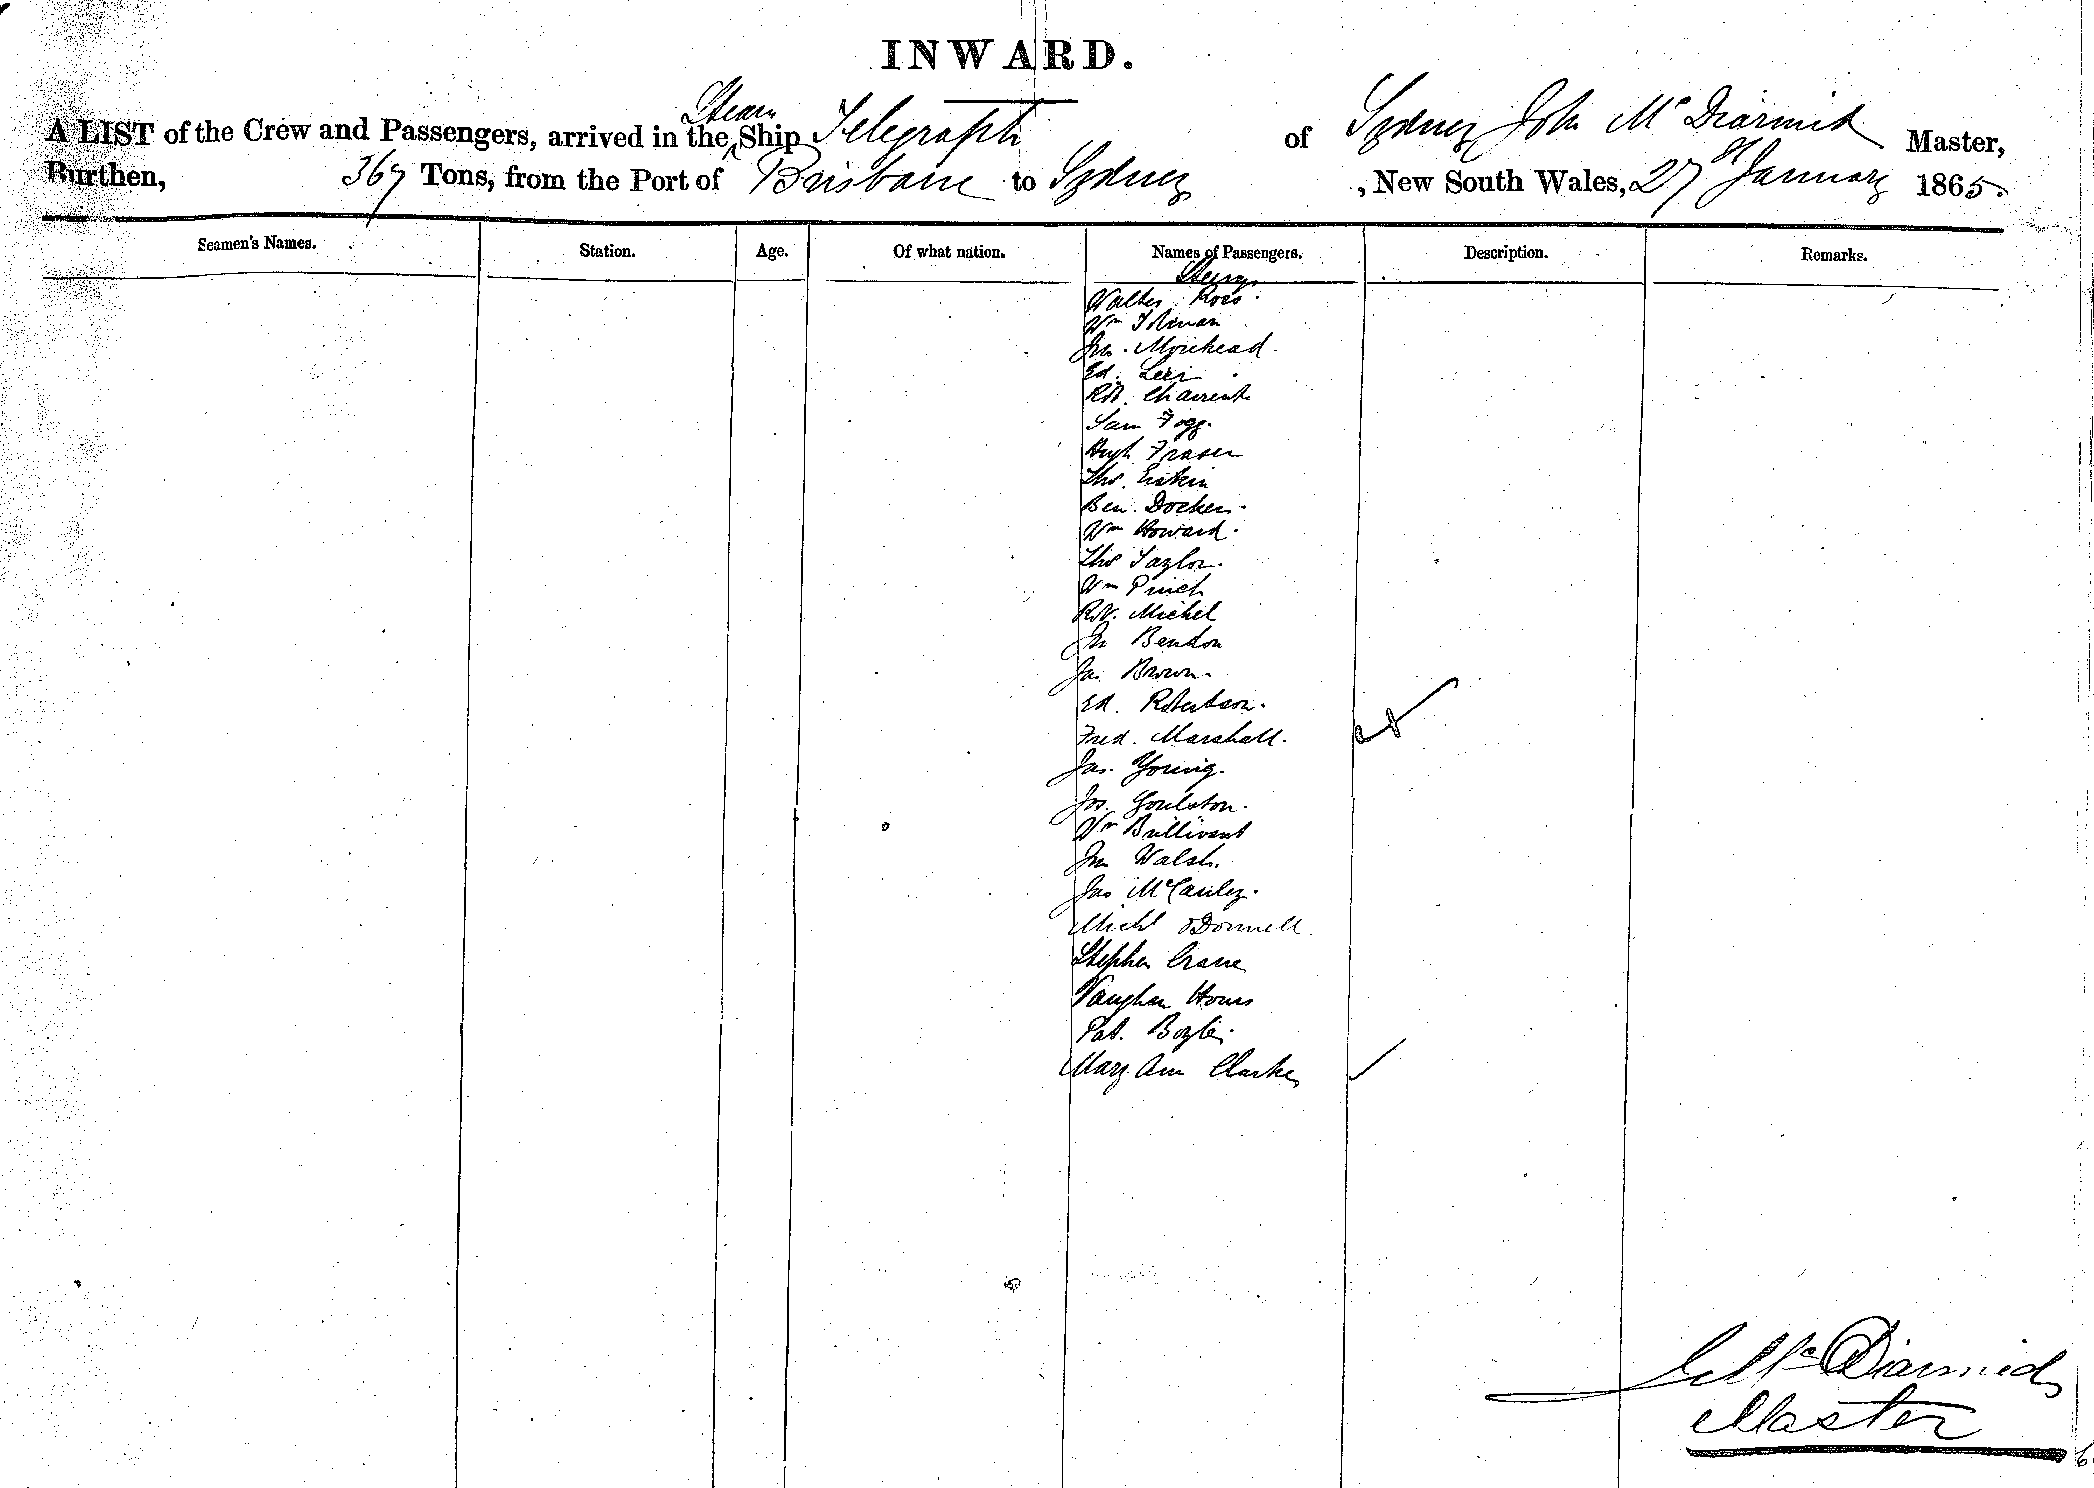 INWARD.
Steam
A LIST of the Crew and Passengers, arrived in the Ship Telegraph of Sydney John McDiarmid Master,
Burthen, 367 Tons, from the Port of Brisbane to Sydney, New South Wales, 27 January 1865.
Seamen's Names. Station. Age. Of what nation. Names of Passengers. Description. Remarks.
Walter Ross
Wm
Jno. Morehead
Ed.
Robt.
Sam Fogg.
Hugh Fraser
Thos. Erskin
Ben. Docker.
Wm Howard.
Thos Taylor.
Wm Pinch
Robt. Michel
Jno Bendon
Jas Brown.
Ed. Robertson.
Fred. Marshall.
Jas. Young.
Jos. Goulston.
Wm Bullivant
Jno Walsh.
Jas McCauley.
Michl O'Donnell.
Stephen Crane
Vaughan
Pat. Boyle.
Mary Ann Clarke
J McDiarmid
Master